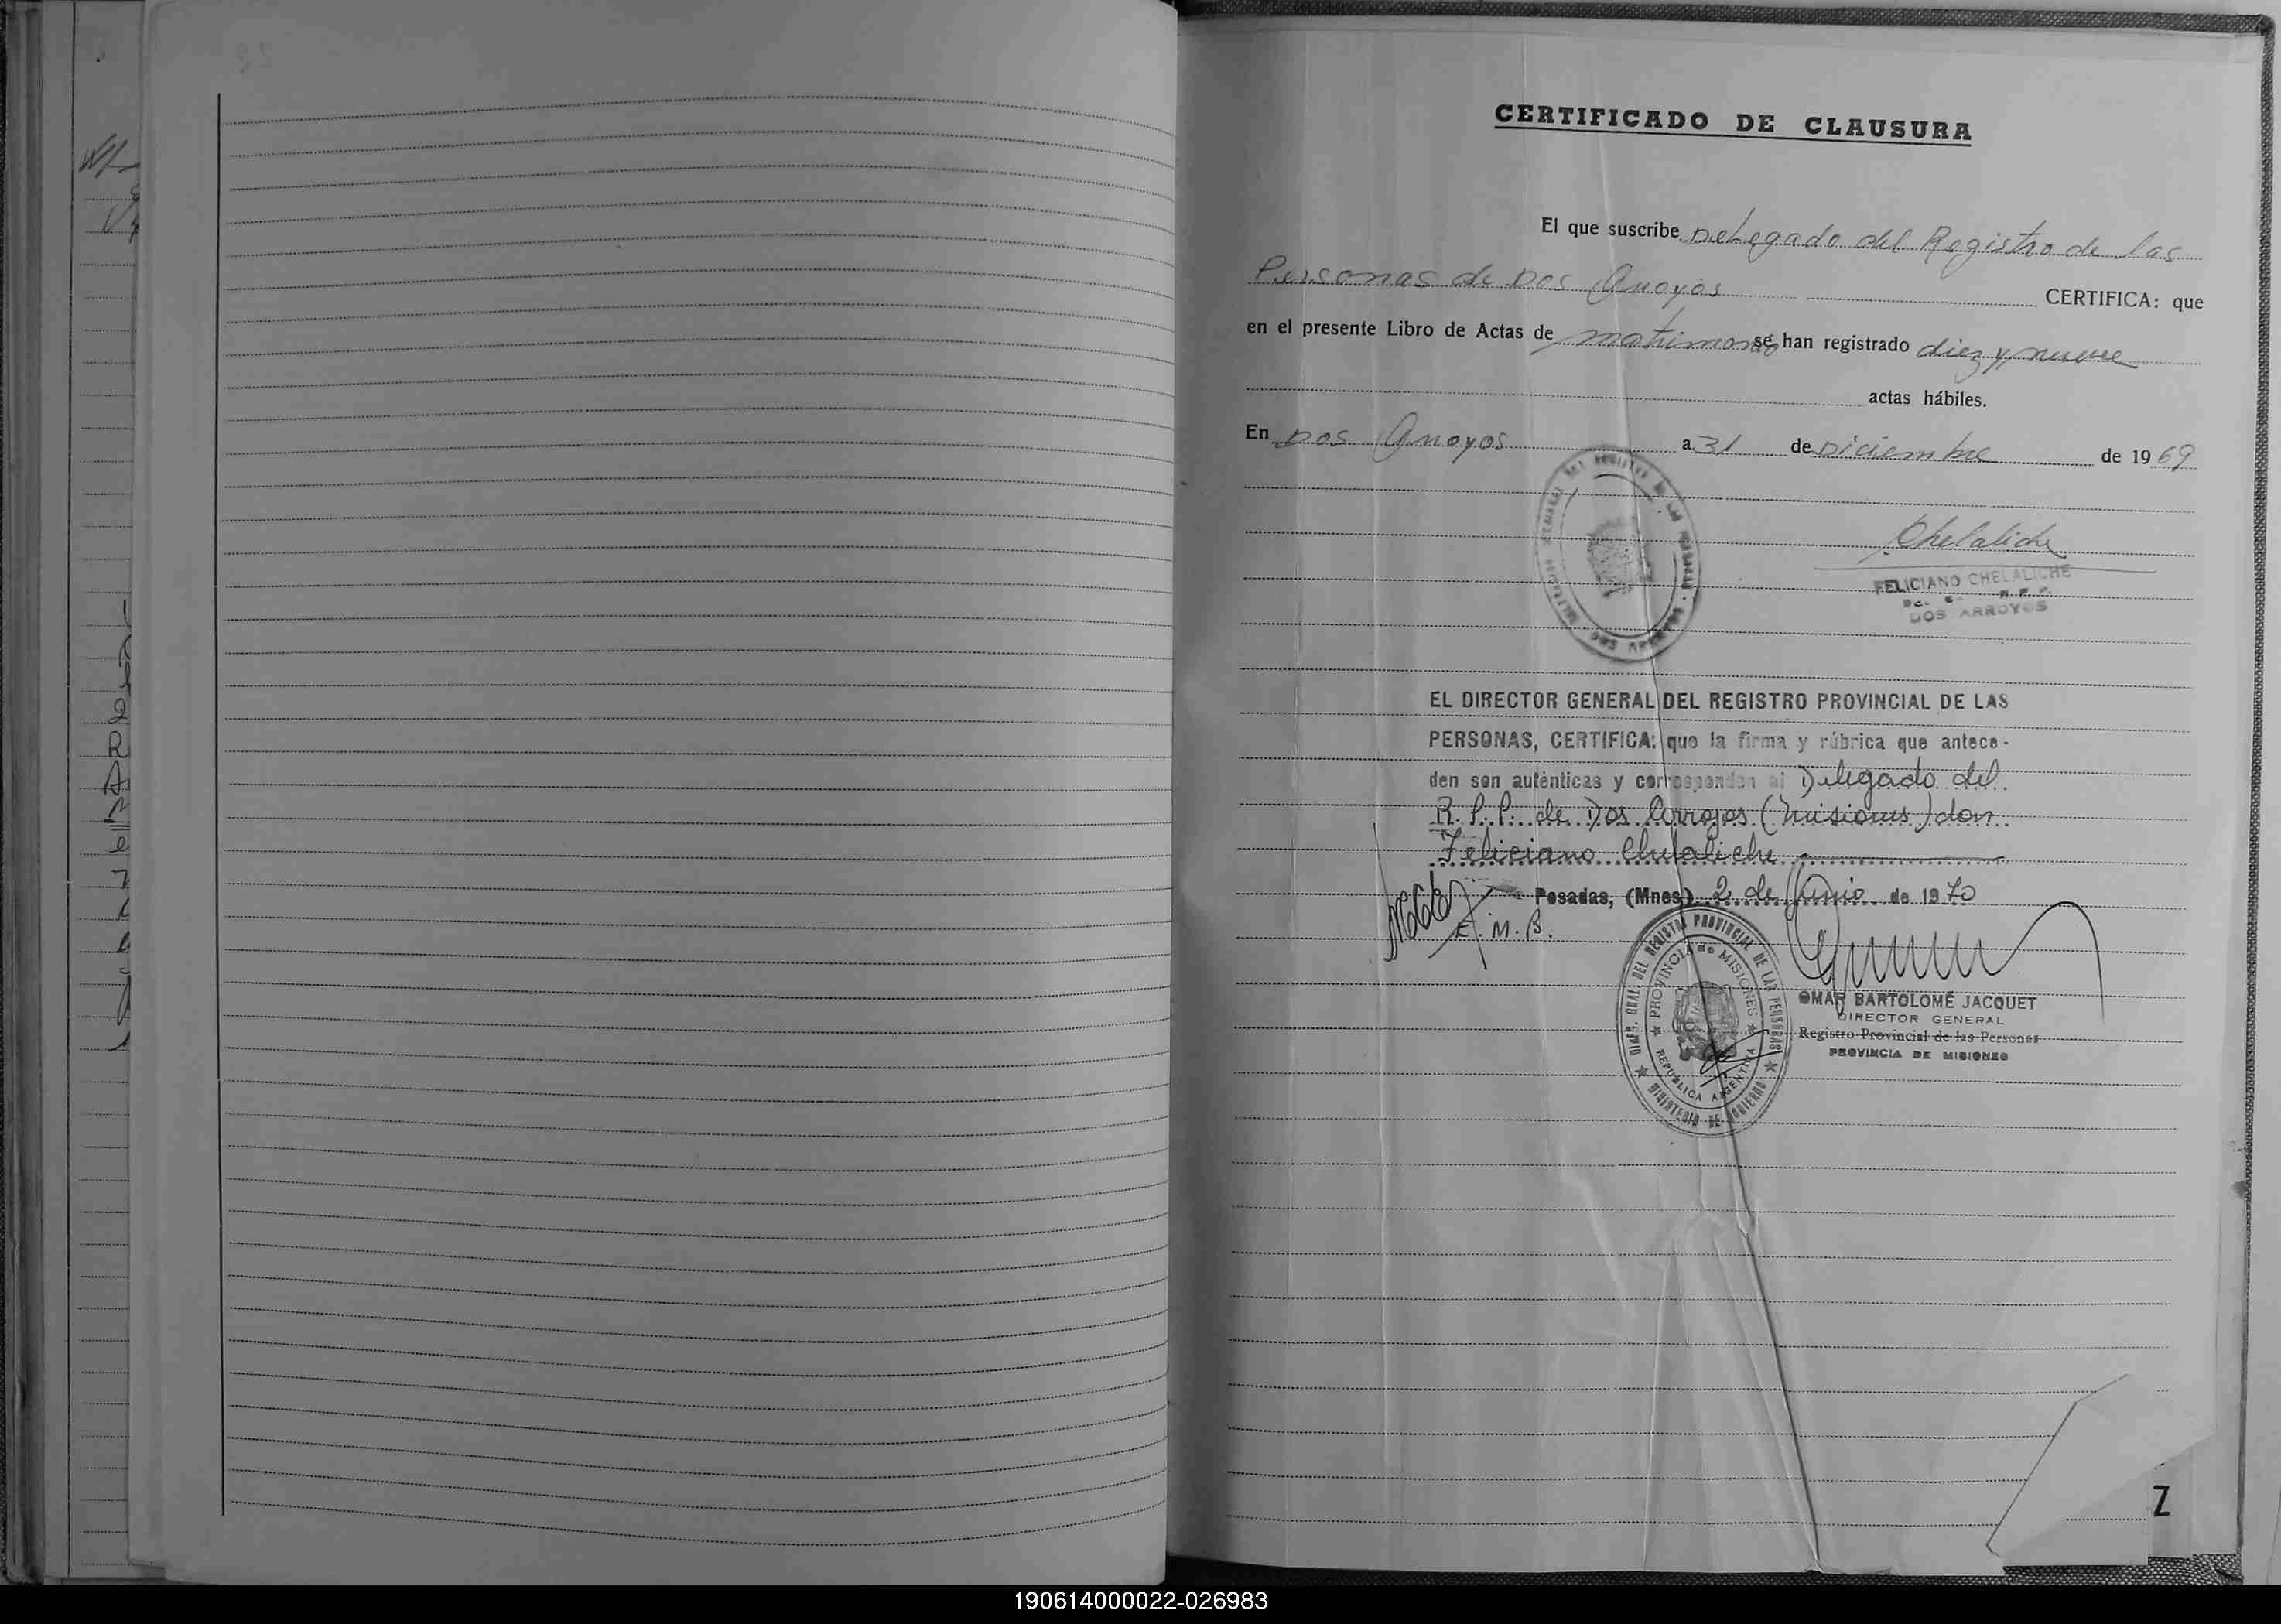 CERTIFICADO DE CLAUSURA
El que suscribe Delegado del Registro de las
Personas de Dos Arroyos CERTIFICA: que
en el presente Libro de Actas de matrimonio se han registrado diez y nueve
actas hábiles.
En Dos Arroyos a 31 de Diciembre de 1969
Chelaliche
FELICIANO CHELALICHE
DOS ARROYOS
EL DIRECTOR GENERAL DEL REGISTRO PROVINCIAL DE LAS
PERSONAS, CERTIFICA: que la firma y rúbrica que antece-
den son auténticas y corresponden al Delegado del
R.P.P. de Dos Arroyos (Misiones) don
Feliciano Chelaliche
Posadas, (Mnes.) 2 de Junio de 1970
E.M.B.
DIREC. GRAL. DEL REGISTRO PROVINCIAL DE LAS PERSONAS
MINISTERIO DE GOBIERNO
PROVINCIA de MISIONES
REPUBLICA ARGENTINA
OMAR BARTOLOMÉ JACQUET
DIRECTOR GENERAL
Registro Provincial de las Personas
PROVINCIA DE MISIONES
Z
190614000022-026983